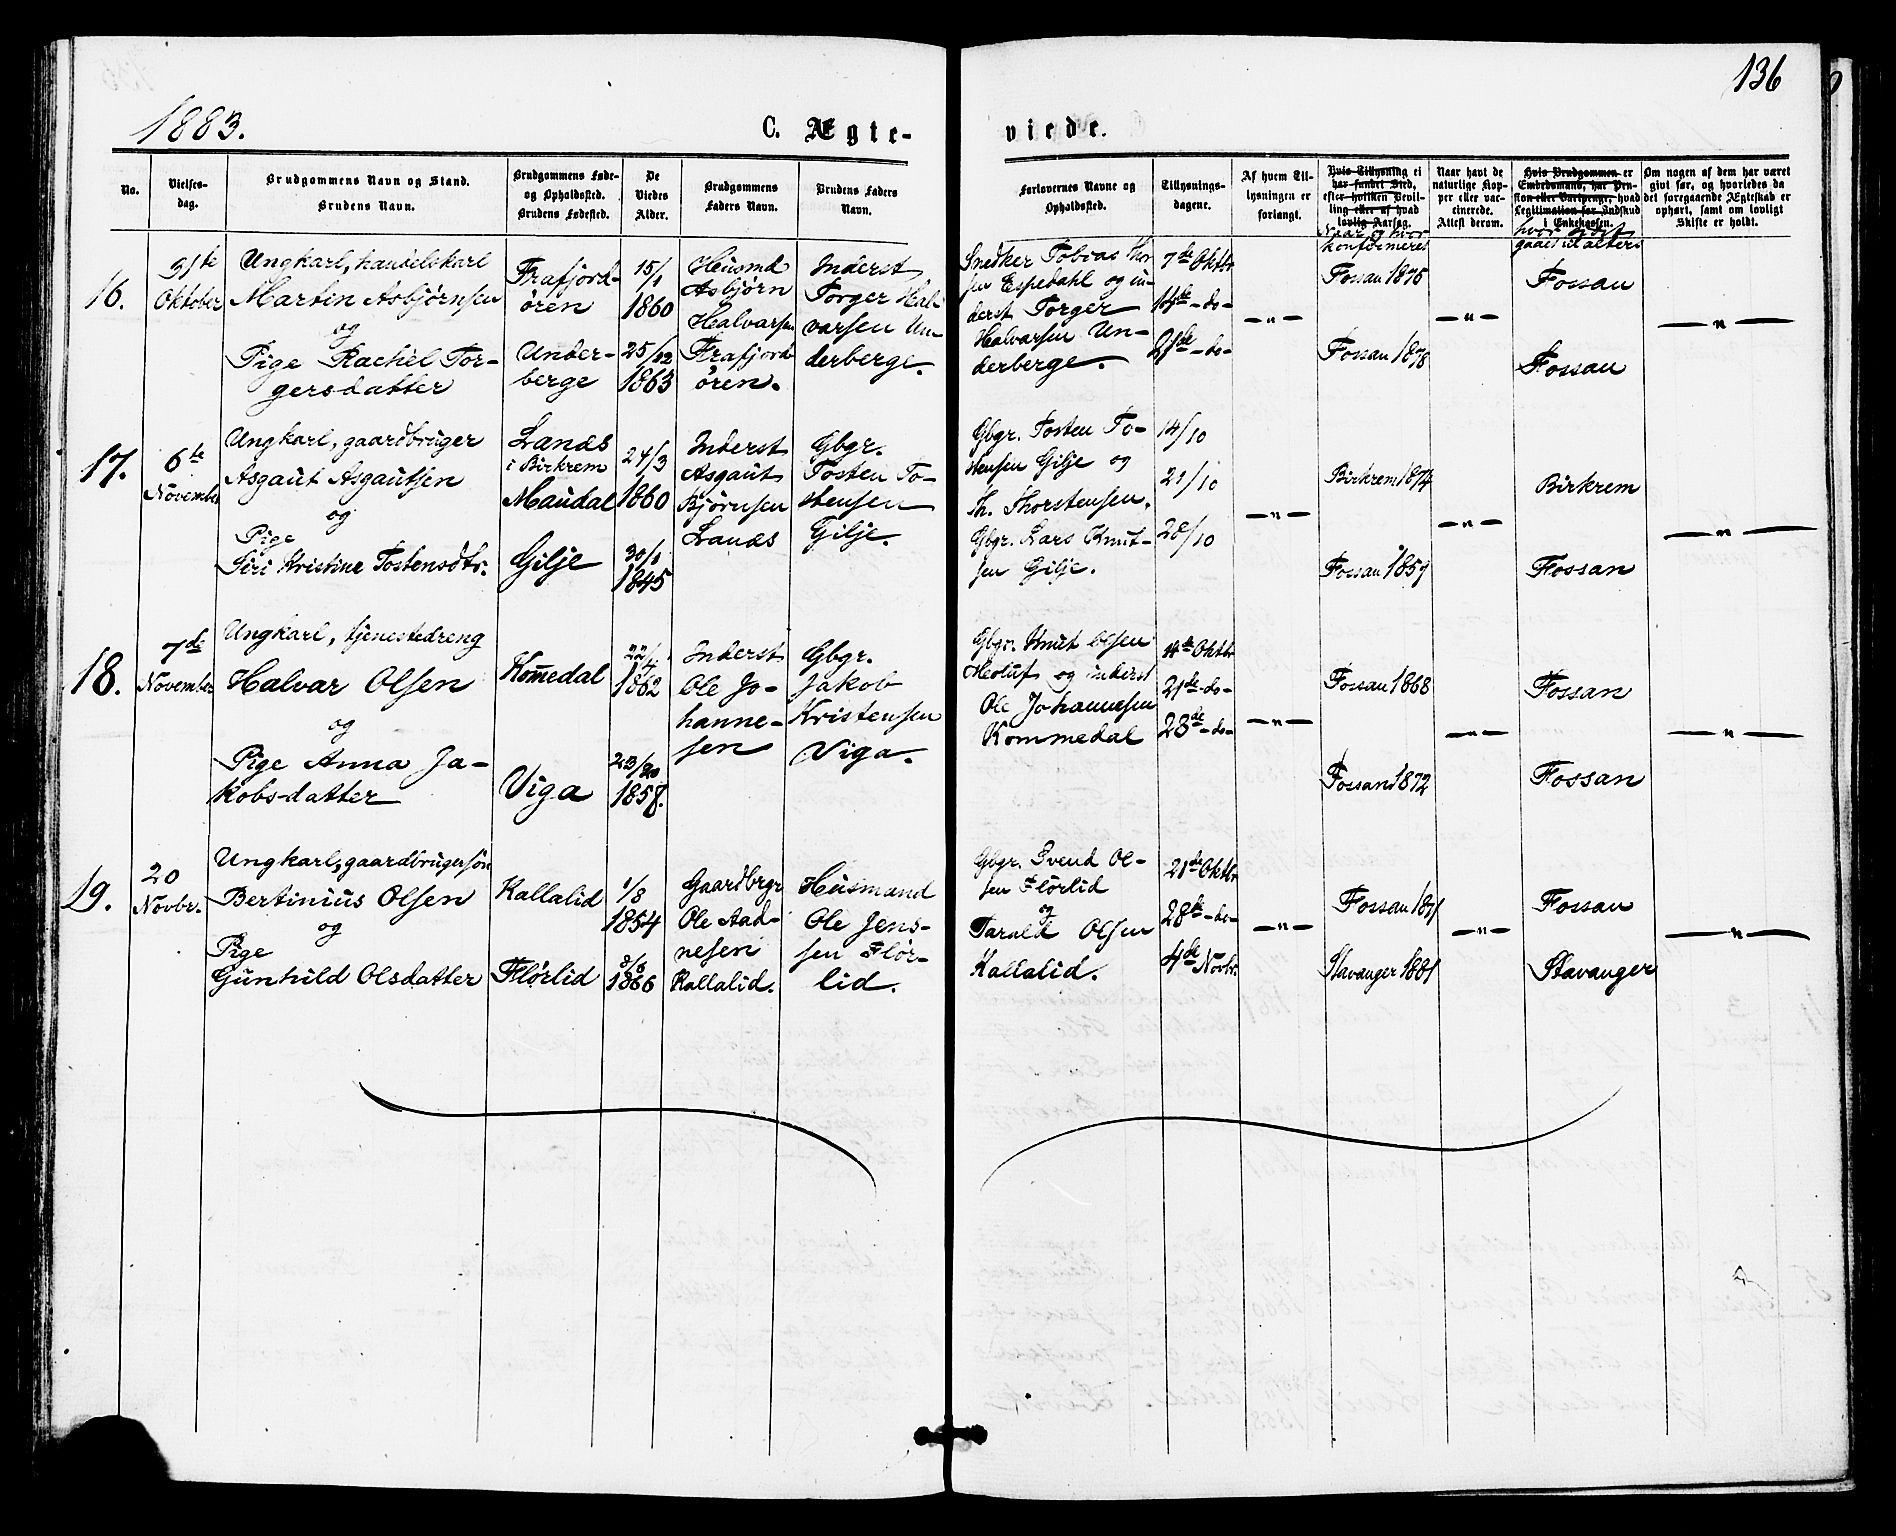 136
1883.
C. Ægte-
viede.
No.
Vielses-
dag.
Brudgommens Navn og Stand.
Brudens Navn.
Brudgommens Føde-
og Opholdssted.
Brudens Fødested.
De
Viedes
Alder.
Brudgommens
Faders Navn.
Brudens Faders
Navn.
Forlovernes Navne og
Opholdssted.
Tillysnings-
dagene.
Af hvem Til-
lysningen er
forlangt.
Hvis Tillysning ei
har fundet Sted,
efter hvilken Bevil-
ling eller af hvad
lovlig Aarsag.
Naar og hvor
konfirmeret
Naar havt de
naturlige Kop-
per eller vac-
cinerede.
Attest derom.
Hvis Brudgommen er
Embedsmand, har Pen-
sion eller Vartpenge, hvad
Legitimation for Indskud
i Enkekassen.
hvor sidst
gaaet til alters
Om nogen af dem har været
givt før, og hvorledes da
det foregaaende Ægteskab er
ophørt, samt om lovligt
Skifte er holdt.
16.
31te
Oktober
Ungkarl, handelskarl
Martin Asbjørnsen
og
Pige Rachel Tor-
gersdatter
Frafjord-
ören
Under-
berge
15/1
1860
25/12
1863
Husmd
Asbjørn
Halvarsen
Frafjord-
ören.
Inderst
Torger Hal-
varsen Un-
derberge.
Snedker Tobias Thor
sen Espedahl og in-
derst Torger
Halvarsen Un-
derberge.
7de Oktbr
14de -do-
21de -do-
-"-
Fossan 1875
Fossan 1878
-"-
Fossan
Fossan
-"-
17.
6te
November
Ungkarl, gaardbruger
Asgaut Asgautsen
og
Pige
Siri Kristine Tostensdtr.
Lanæs
i Birkrem
Maudal
Gilje
24/3
1860
30/1
1845
Inderst
Asgaut
Bjørnsen
Lanæs
Gbgr.
Tosten To-
stensen
Gilje.
Gbgr. Tosten To-
stensen Gilje og
Th. Thorstensen.
Gbgr. Lars Knut-
sen Gilje.
14/10
21/10
28/10
-"-
Birkrem 1874
Fossan 1859
-"-
Birkrem
Fossan
-"-
18.
7de
November
Ungkarl, tjenestedreng
Halvar Olsen
og
Pige Anna Ja-
kobsdatter
Komedal
Viga
22/4
1862
1858.
Inderst
Ole Jo-
hanne-
sen
Gbgr.
Jakob
Kristensen
Viga.
Gbgr. Knut Olsen
Meoluf og inderst
Ole Johannesen
Kommedal
14de Oktbr
21de -do-
28de -do-
-"-
Fossan 1868
Fossan 1872
-"-
Fossan
Fossan
-"-
19.
20
Novbr.
Ungkarl, gaardbrugersøn
Bertinius Olsen
og
Pige
Gunhild Olsdatter
Kallalid
Flørlid
1/8
1854
1866
Gaardbrgr
Ole Aad-
nesen
Kallalid.
Husmand
Ole Jens-
sen Flør-
lid.
Gbgr. Svend Ol-
sen Flørlid
og
Tarald Olsen
Kallalid.
21de Oktbr
28de -do-
4de Novbr.
-"-
Fossan 1871
Stavanger 1881
-"-
Fossan
Stavanger
-"-